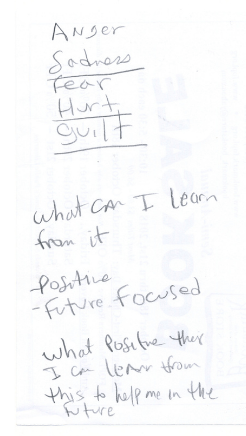 Anger
Sadness
Fear
Hurt
guilt
what can I learn
from it
-Positive
-Future Focused
what Positive ther
I can learn from
this to help me in the
future
BOOK SALE